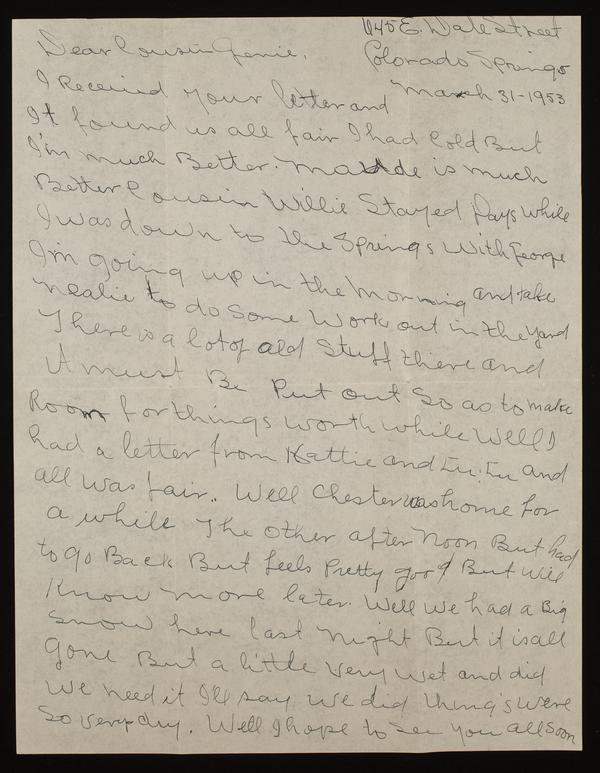 E. Dale Street
Colorado Springs
March 31-1953
Dear Cousin Genie,
I Received your letter and
It found us all fair I had Cold But
I'm much Better. Maude is much
Better Cousin Willie Stayed Days while
I was down to the Springs With George
I'm going up in the Morning and take
Nealie to do Some Work out in the yard
There is a lot of old Stuff there and
it must Be Put out So as to make
Room for things worth while Well I
had a letter from Kattie and Lu. Lu and
all was fair.. Well Chester was home for
a while The other after Noon But had
to go Back But feels Pretty good But will
Know more later. Well We had a Big
Snow here last Night But it is all
gone But a little Very Wet and did
We need it I'll say we did thing's were
So very dry. Well I hope to see you all soon